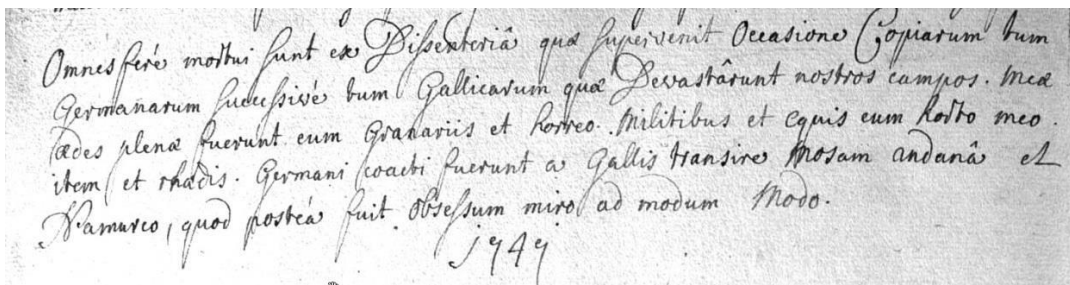 Omnes feré mortui sunt ex Dissenteriâ quæ supervenit Occasione Copiarum tum
Germanarum successivé tum Gallicarum quæ Devastârunt nostros campos. Meæ
ædes plenæ fuerunt cum Granariis et horreo. Militibus et equis cum horto meo.
item et rhædis. Germani coacti fuerunt a Gallis transire Mosam andanâ et
Namurco, quod posteá fuit obsessum miro ad modum Modo.
1747